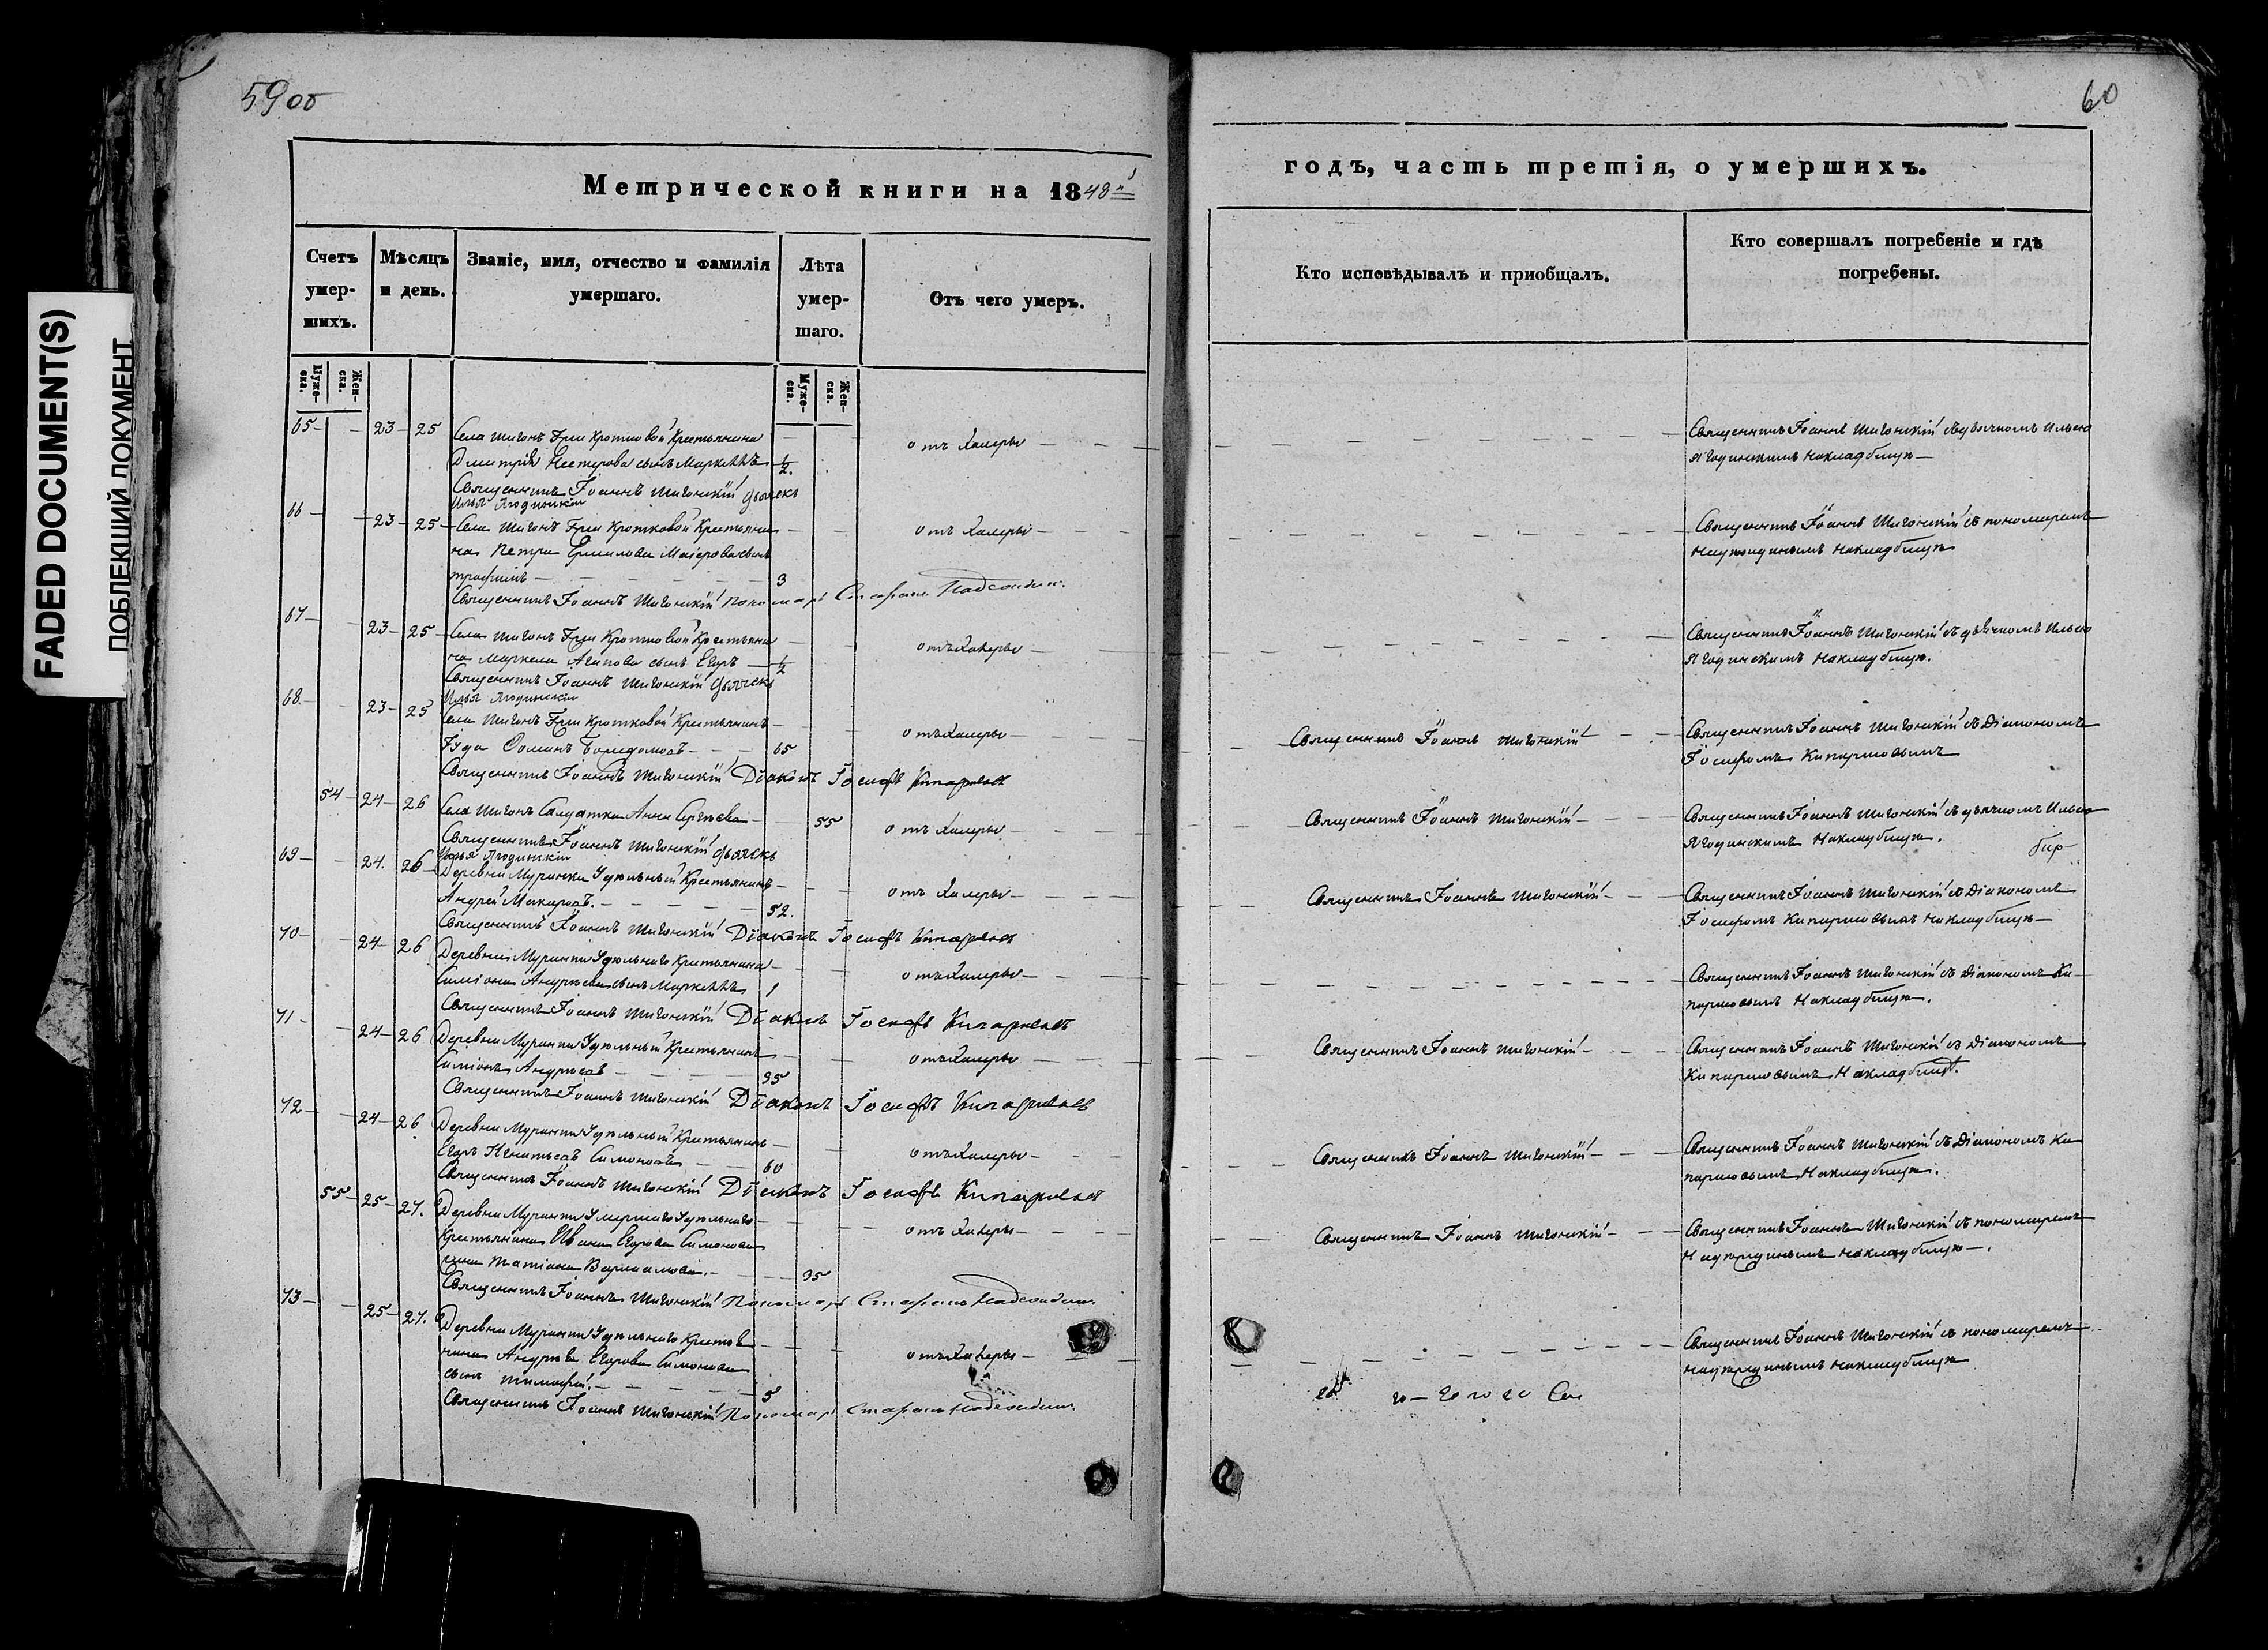 59 об
60
FADED DOCUMENT(S)
ПОБЛЕКШИЙ ДОКУМЕНТ
Метрической книги на 1848й
годъ, часть третія, о умершихъ.
Счетъ умер-
шихъ.
Мѣсяцъ
и день.
Званіе, имя, отчество и фамилія
умершаго.
Лѣта
умер-
шаго.
Отъ чего умеръ.
Кто исповѣдывалъ и пріобщалъ.
Кто совершалъ погребеніе и гдѣ
погребены.
Муже-
ска.
Жен-
ска.
Муже-
ска.
Жен-
ска.
65 23 25 Села Шигонъ Крестьянина
Дмитрія Нестерова сынъ 1/2 отъ Холеры
Священникъ Іоаннъ Шигонскій дьячекъ
Илья Ягодинскій
Священникъ Іоаннъ Шигонскій съ дьячкомъ Ильею
Ягодинскимъ на кладбищѣ
66 23 25 Села Шигонъ Крестьяни-
на Петра Ермилова сынъ
Трофимъ 3 отъ Холеры
Священникъ Іоаннъ Шигонскій Пономарь
Священникъ Іоаннъ Шигонскій съ пономаремъ
на кладбищѣ
67 23 25 Села Шигонъ Крестьяни-
на Маркела Агапова сынъ Егоръ 1/2 отъ Холеры
Священникъ Іоаннъ Шигонскій дьячекъ
Илья Ягодинскій
Священникъ Іоаннъ Шигонскій съ дьячкомъ Ильею
Ягодинскимъ на кладбищѣ.
68 23 25 Села Шигонъ Крестьянинъ
65 отъ Холеры
Священникъ Іоаннъ Шигонскій Діаконъ Іосифъ Кипарисовъ
Священникъ Іоаннъ Шигонскій
Священникъ Іоаннъ Шигонскій съ Діакономъ
Іосифомъ Кипарисовымъ
54 24 26 Села Шигонъ Салдатка Анна Сергѣева 55 отъ Холеры
Священникъ Іоаннъ Шигонскій дьячекъ
Илья Ягодинскій
Священникъ Іоаннъ Шигонскій
Священникъ Іоаннъ Шигонскій съ дьячкомъ Ильею
Ягодинскимъ на кладбищѣ.
69 24 26 Деревни Муранки Удѣльный Крестьянинъ
Андрей Макаровъ. 52. отъ Холеры
Священникъ Іоаннъ Шигонскій Діаконъ Іосифъ Кипарисовъ
Священникъ Іоаннъ Шигонскій
Священникъ Іоаннъ Шигонскій съ Діакономъ
Іосифомъ Кипарисовымъ на кладбищѣ
70 24 26 Деревни Муранки Удѣльнаго Крестьянина
Симіона Андрѣева сынъ 1 отъ Холеры
Священникъ Іоаннъ Шигонскій Діаконъ Іосифъ Кипарисовъ
Священникъ Іоаннъ Шигонскій съ Діакономъ Ки-
парисовымъ на кладбищѣ.
71 24 26 Деревни Муранки Удѣльный Крестьянинъ
Симіонъ Андрѣевъ 35 отъ Холеры
Священникъ Іоаннъ Шигонскій Діаконъ Іосифъ Кипарисовъ
Священникъ Іоаннъ Шигонскій
Священникъ Іоаннъ Шигонскій съ Діакономъ
Кипарисовымъ на кладбищѣ.
72 24 26 Деревни Муранки Удѣльный Крестьянинъ
Егоръ Игнатьевъ Симоновъ 60 отъ Холеры
Священникъ Іоаннъ Шигонскій Діаконъ Іосифъ Кипарисовъ
Священникъ Іоаннъ Шигонскій
Священникъ Іоаннъ Шигонскій съ Діакономъ Ки-
парисовымъ на кладбищѣ.
55 25 27. Деревни Муранки Умершаго Удѣльнаго
Крестьянина Ивана Егорова Симонова
жена Татіана Варлаамова. 35 отъ Холеры
Священникъ Іоаннъ Шигонскій Пономарь
Священникъ Іоаннъ Шигонскій
Священникъ Іоаннъ Шигонскій съ пономаремъ
на кладбищѣ.
73 25 27. Деревни Муранки Удѣльнаго Крестья-
нина Андрѣя Егорова Симонова
сынъ Тимофей. 5 отъ Холеры
Священникъ Іоаннъ Шигонскій Пономарь
Священникъ Іоаннъ Шигонскій съ пономаремъ
на кладбищѣ